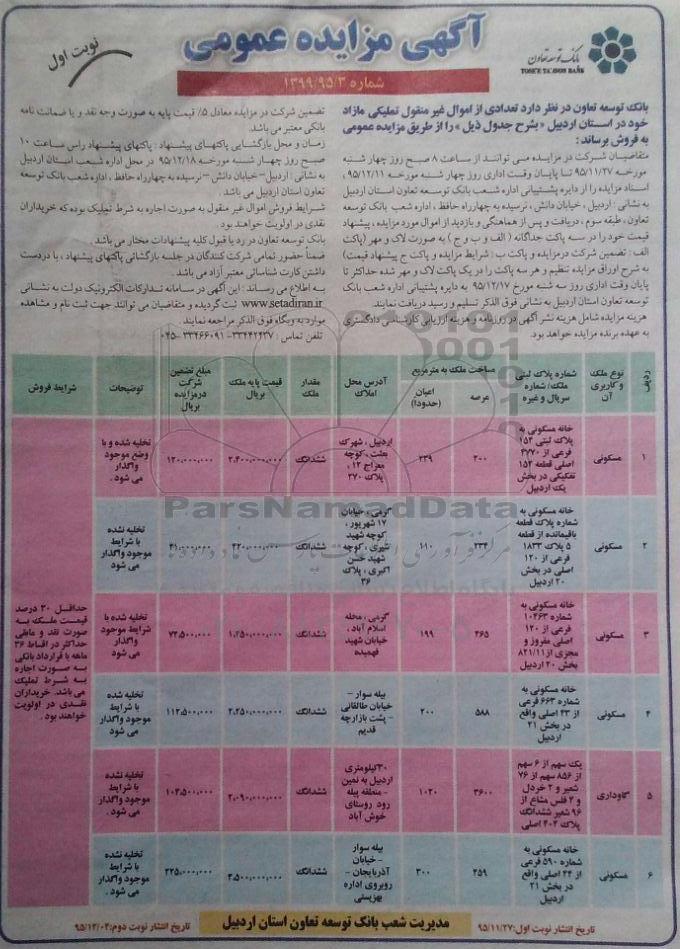 بانک توسعه تعاون
TOSE'E TA'AVON BANK
آگهی مزایده عمومی
نوبت اول
شماره ۱۳۹۹/۹۵/۳
بانک توسعه تعاون در نظر دارد تعدادی از اموال غیر منقول تملیکی مازاد
خود در استان اردبیل «بشرح جدول ذیل» را از طریق مزایده عمومی
به فروش برساند :
متقاضیان شرکت در مزایده می توانند از ساعت ۸ صبح روز چهار شنبه
مورخه ۹۵/۱۱/۲۷ تا پایان وقت اداری روز چهار شنبه مورخه ۹۵/۱۲/۱۱ ،
اسناد مزایده را از دایره پشتیبانی اداره شعب بانک توسعه تعاون استان اردبیل
به نشانی : اردبیل ، خیابان دانش ، نرسیده به چهارراه حافظ ، اداره شعب بانک توسعه
تعاون ، طبقه سوم ، دریافت و پس از هماهنگی و بازدید از اموال مورد مزایده ، پیشنهاد
قیمت خود را در سه پاکت جداگانه ( الف و ب و ج ) به صورت لاک و مهر (پاکت
الف : تضمین شرکت درمزایده و پاکت ب : شرایط مزایده و پاکت ج پیشنهاد قیمت)
به شرح اوراق مزایده تنظیم و هر سه پاکت را در یک پاکت لاک و مهر شده حداکثر تا
پایان وقت اداری روز سه شنبه مورخ ۹۵/۱۲/۱۷ به دایره پشتیبانی اداره شعب بانک
توسعه تعاون استان اردبیل به نشانی فوق الذکر تسلیم و رسید دریافت نمایند.
هزینه مزایده شامل هزینه نشر آگهی در روزنامه و هزینه ارزیابی کارشناسی دادگستری
به عهده برنده مزایده خواهد بود.
تضمین شرکت در مزایده معادل ۵٪ قیمت پایه به صورت وجه نقد و یا ضمانت نامه
بانکی معتبر می باشد.
زمان و محل بازگشایی پاکتهای پیشنهاد : پاکتهای پیشنهاد راس ساعت ۱۰
صبح روز چهار شنبه مورخه ۹۵/۱۲/۱۸ در محل اداره شعب استان اردبیل
به نشانی : اردبیل – خیابان دانش – نرسیده به چهارراه حافظ ، اداره شعب بانک توسعه
تعاون استان اردبیل می باشد .
شرایط فروش اموال غیر منقول به صورت اجاره به شرط تملیک بوده که خریداران
نقدی در اولویت خواهند بود .
بانک توسعه تعاون در رد یا قبول کلیه پیشنهادات مختار می باشد .
ضمناً حضور تمامی شرکت کنندگان در جلسه بازگشائی پاکتهای پیشنهاد ، با در دست
داشتن کارت شناسائی معتبر آزاد می باشد .
به اطلاع می رساند : این آگهی در سامانه تدارکات الکترونیک دولت به نشانی
www.setadiran.ir ثبت گردیده و متقاضیان می توانند جهت ثبت نام و مشاهده
موارد به وبگاه فوق الذکر مراجعه نمایند .
تلفن تماس : ۳۳۴۴۲۴۳۷–۳۳۴۶۶۰۹۱–۰۴۵
ردیف
نوع ملک و کاربری آن
شماره پلاک ثبتی ملک/ شماره سریال و غیره
مساحت ملک به مترمربع
عرصه
اعیان (حدوداً)
آدرس محل املاک
مقدار ملک
قیمت پایه ملک بریال
مبلغ تضمین شرکت درمزایده بریال
توضیحات
شرایط فروش
۱
مسکونی
خانه مسکونی به پلاک ثبتی ۱۵۲ فرعی از ۴۷۷۰ اصلی قطعه ۱۵۲ تفکیکی در بخش یک اردبیل
۲۰۰
۲۳۹
اردبیل ، شهرک بعثت ، کوچه معراج ۱۲ ، پلاک ۲۷۰
ششدانگ
۲،۴۰۰،۰۰۰،۰۰۰
۱۲۰،۰۰۰،۰۰۰
تخلیه شده و با وضع موجود واگذار می شود .
۲
مسکونی
خانه مسکونی به شماره پلاک قطعه باقیمانده از قطعه ۵ پلاک ۱۸۳۳ فرعی از ۱۲۰ اصلی در بخش ۲۰ اردبیل
۲۳۴
۱۱۰
گرمی ، خیابان ۱۷ شهریور ، کوچه شهید شیری ، کوچه شهید حسن اکبری ، پلاک ۳۶
ششدانگ
۸۲۰،۰۰۰،۰۰۰
۴۱،۰۰۰،۰۰۰
تخلیه نشده با شرایط موجود واگذار می شود
۳
مسکونی
خانه مسکونی به شماره ۱۰۲۶۳ فرعی از ۱۲۰ اصلی مفروز و مجزی از ۸۲۱/۱۱ بخش ۲۰ اردبیل
۲۶۵
۱۹۹
گرمی ، محله اسلام آباد ، خیابان شهید فهمیده
ششدانگ
۱،۴۵۰،۰۰۰،۰۰۰
۷۲،۵۰۰،۰۰۰
تخلیه شده با شرایط موجود واگذار می شود
۴
مسکونی
خانه مسکونی به شماره ۶۶۳ فرعی از ۴۳ اصلی واقع در بخش ۲۱ اردبیل
۵۸۸
۲۰۰
بیله سوار – خیابان طالقانی – پشت بازارچه قدیم
ششدانگ
۲،۲۵۰،۰۰۰،۰۰۰
۱۱۲،۵۰۰،۰۰۰
تخلیه شده با شرایط موجود واگذار می شود
۵
گاوداری
یک سهم از ۶ سهم از ۸۵۶ سهم از ۷۶ شعیر و ۲ خردل و ۲ فلس مشاع از ۹۶ شعیر ششدانگ پلاک ۲۰۲ اصلی
۳۶۰۰
۱۰۲۰
۳۰کیلومتری اردبیل به نمین – منطقه پیله رود روستای خوش آباد
ششدانگ
۲،۰۹۰،۰۰۰،۰۰۰
۱۰۴،۵۰۰،۰۰۰
تخلیه نشده با شرایط موجود واگذار می شود .
۶
مسکونی
خانه مسکونی به شماره ۵۹۰ فرعی از ۴۴ اصلی واقع در بخش ۲۱ اردبیل
۲۵۹
۳۰۰
بیله سوار – خیابان آذربایجان – روبروی اداره بهزیستی
ششدانگ
۴،۵۰۰،۰۰۰،۰۰۰
۲۲۵،۰۰۰،۰۰۰
تخلیه نشده با شرایط موجود واگذار می شود .
حداقل ۳۰ درصد
قیمت ملک به
صورت نقد و مابقی
حداکثر در اقساط ۳۶
ماهه با قرارداد بانکی
به صورت اجاره
به شرط تملیک
می باشد. خریداران
نقدی در اولویت
خواهند بود .
ParsNamadData
تاریخ انتشار نوبت اول: ۹۵/۱۱/۲۷
مدیریت شعب بانک توسعه تعاون استان اردبیل
تاریخ انتشار نوبت دوم: ۹۵/۱۲/۰۴